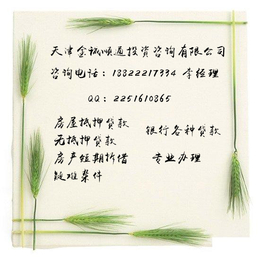 天津金诚顺通投资咨询有限公司
咨询电话：13322217334 李经理
QQ：2251610365
房屋抵押贷款
银行各种贷款
无抵押贷款
房产短期拆借
专业办理
疑难案件